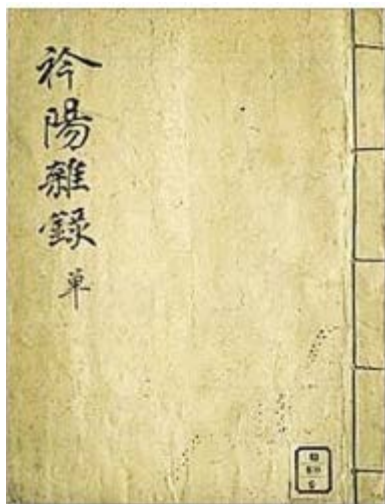 衿陽雜錄 單